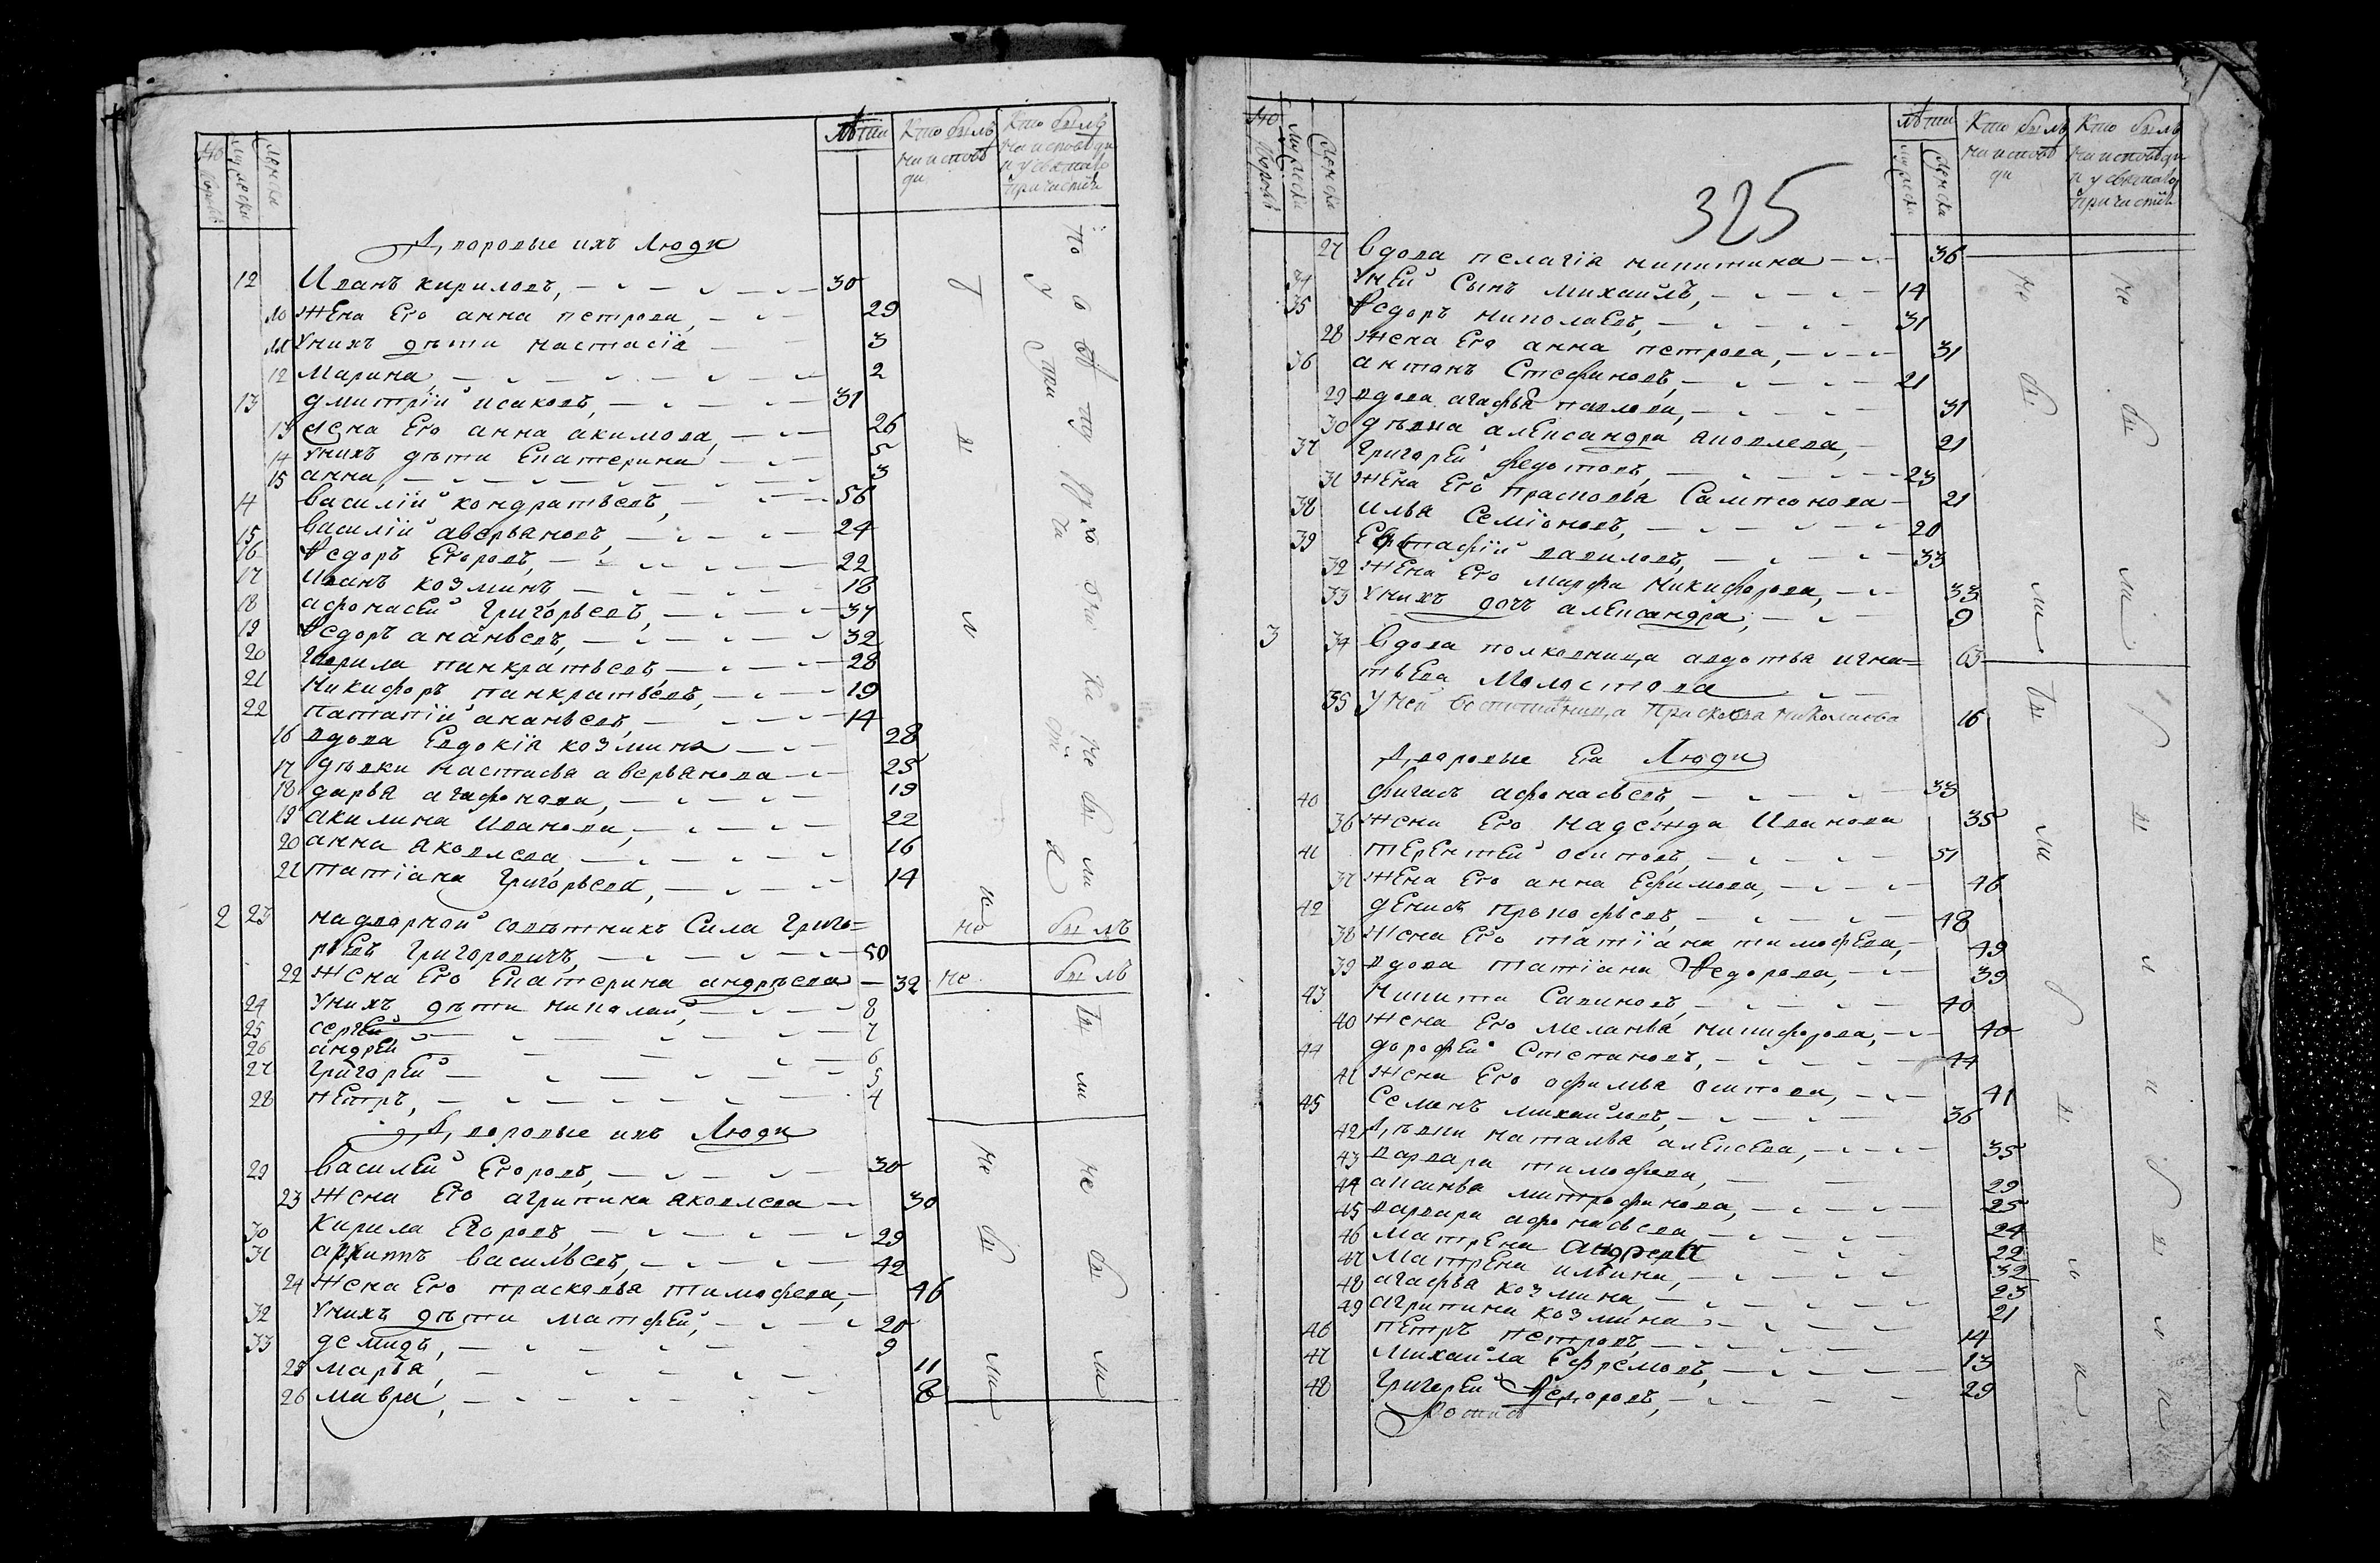 лѣти
Кто былъ на исповѣди
Кто былъ на исповѣди и у святаго причастія
Дворовые ихъ Люди
12 Иванъ кириловъ, 30
10 жена Его анна петрова, 29
11 Унихъ дѣти настасія 3
12 Марина, 2
13 дмитрій исаковъ, 31
13 жена Его анна акимова, 26
14 Унихъ дѣти Екатерина 5
15 анна, 3
14 василій кондратьевъ, 56
15 василій аверьяновъ, 24
16 Ѳедоръ Егоровъ, 22
17 Иванъ козминъ, 18
18 афонасей Григорьевъ, 37
19 Ѳедоръ ананьевъ, 32
20 Гаврила панкратьевъ, 28
21 Никифоръ панкратьевъ, 19
22 патапій ананьевъ, 14
16 вдова Евдокія козмина 28
17 дѣвки настасья аверьянова 25
18 дарья агафонова, 19
19 акилина Иванова, 22
20 анна яковлева, 16
21 татіана Григорьева, 14
2 23 надворной советникъ Сила Григо=
рьевъ Григоровичъ, 50 не былъ
22 Жена Его Екатерина андрѣева 32 не былъ
24 Унихъ дѣти николай, 8
25 сергей 7
26 андрей 6
27 Григорей 5
28 петръ, 4
Дворовые ихъ Люди
29 Василей Егоровъ, 30
23 жена Его агрипина яковлева 30
30 Кирила Егоровъ, 29
31 архипъ васильевъ, 42
24 жена Его прасковья тимофеева, 46
32 Унихъ дѣти матфей, 20
33 демидъ, 9
25 марья, 11
26 мавра, 8
325
лѣти
Кто былъ на исповѣди
Кто былъ на исповѣди и у святаго причастія
27 вдова пелагія никитина 36
34 Уней Сынъ михаилъ, 14
35 Ѳедоръ николаевъ, 31
28 жена Его анна петрова, 31
36 антонъ Стефановъ, 21
29 вдова агафья павлова, 31
30 дѣвка александра яковлева, 21
37 Григорей федотовъ, 23
31 жена Его прасковья Сампсонова 21
38 илья Семіоновъ, 20
39 Евстафій вавиловъ, 33
32 жена Его марфа никифорова, 33
33 Унихъ дочь александра, 9
3 34 вдова полковница авдотья игна=
тьева Молостова 63
35 У ней воспитанница Прасковья Николаева 16
Дворовые Ея Люди
40 афонасьевъ, 33
36 жена Его надежда Иванова 35
41 терентей осиповъ, 51
37 жена Его анна Ефимова, 46
42 денисъ прокофьевъ, 48
38 жена Его татіана тимофеева, 49
39 вдова татіана Ѳедорова, 39
43 Никита Савиновъ, 40
40 жена Его меланья никифорова, 40
44 дорофей Степановъ, 44
41 жена Его афимья осипова, 41
45 Семенъ михайловъ, 36
42 Дѣвки наталья алексеева, 35
43 варвара тимофеева, 29
44 аксинья митрофанова, 25
45 варвара афонасьева, 24
46 матрена андреева 22
47 матрена ильина, 32
48 агафья козмина, 23
49 агрипина козмина 21
46 петръ петровъ, 14
47 михаила Ефремовъ, 13
48 Григорей Ѳедоровъ, 29